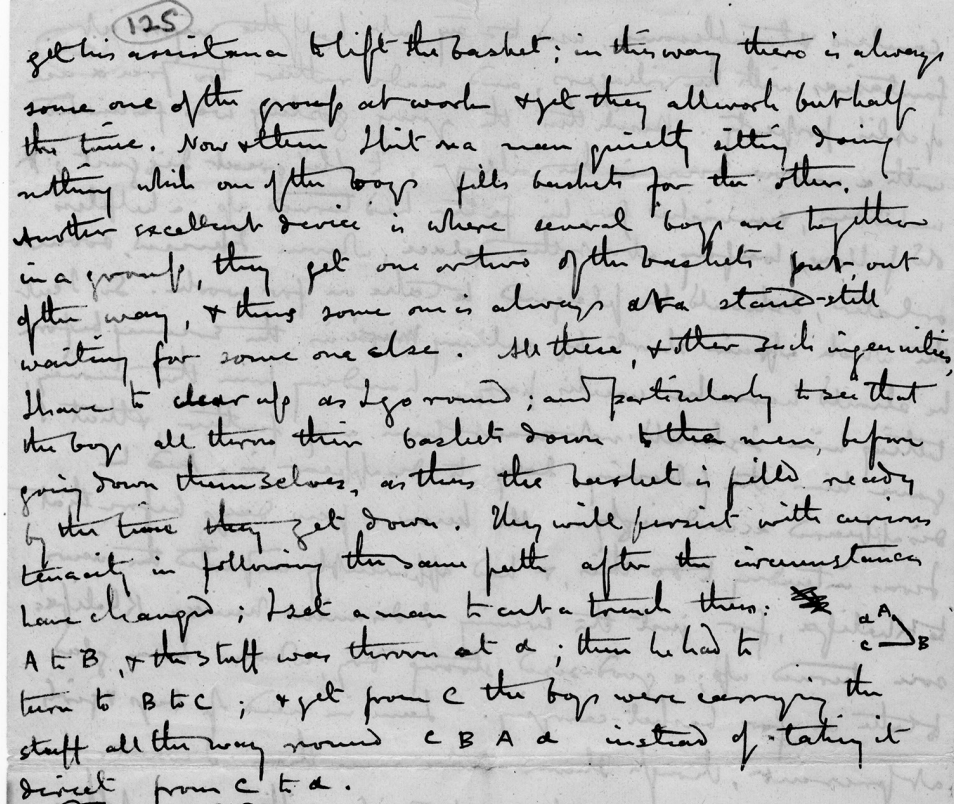 125
get his assistance to lift the basket; in this way there is always
some one of the group at work & yet they all work but half
the time. Now & then I hit on a man quietly sitting doing
nothing while one of the boys fills baskets for the others.
Another excellent device is where several boys are together
in a group, they get one or two of the baskets put out
of the way, & thus some one is always at a stand-still
waiting for some one else. All these, & other such ingenuities,
I have to clear up as I go round; and particularly to see that
the boys all throw their baskets down to the men, before
going down themselves, as thus the basket is filled ready
by the time they get down. They will persist with curious
tenacity in following the same path after the circumstances
have changed; I set a man to cut a trench thus:
d A
C B
A to B, & the stuff was thrown at d; then he had to
turn to B to C; & yet from C the boys were carrying the
stuff all the way round C B A d instead of taking it
direct from C to d.